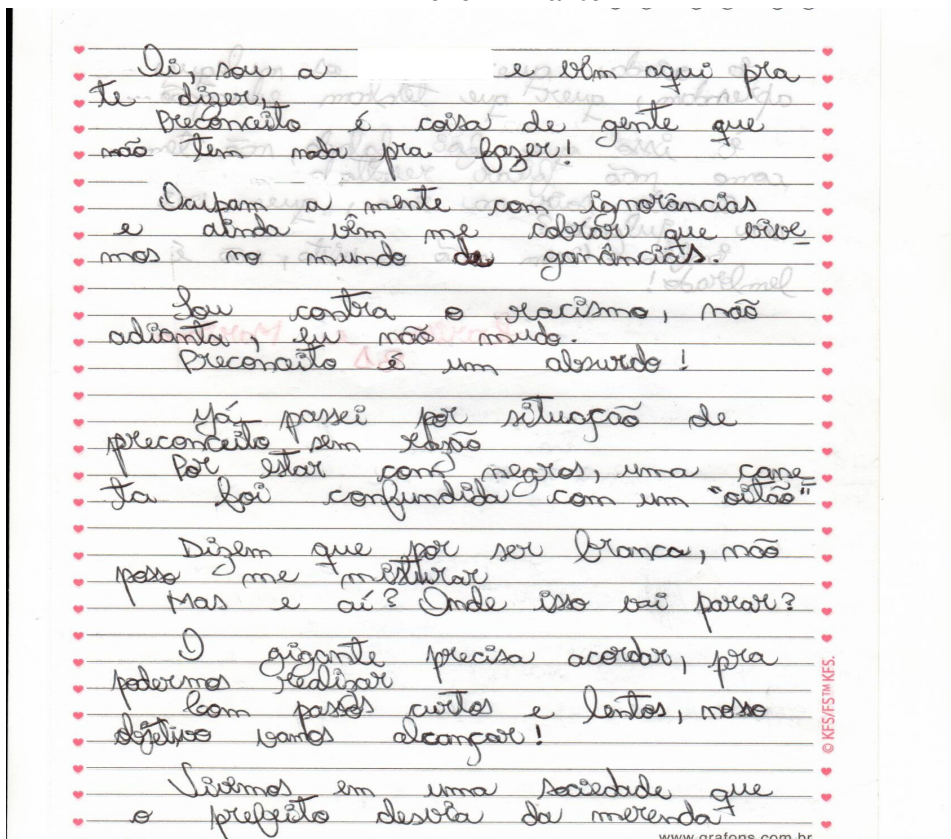 Oi, sou a e vim aqui pra
te dizer,
Preconceito é coisa de gente que
não tem nada pra fazer!
Ocupam a mente com ignorâncias
e ainda vêm me cobrar que vive
mos no mundo de ganâncias.
Sou contra o racismo, não
adianta, eu não mudo.
Preconceito é um absurdo!
Já passei por situação de
preconceito sem razão
Por estar com negros, uma cane
ta foi confundida com um "oitão"
Dizem que por ser branca, não
posso me misturar
Mas e aí? Onde isso vai parar?
O gigante precisa acordar, pra
podermos realizar
Com passos curtos e lentos, nosso
objetivo vamos alcançar!
Vivemos em uma sociedade que
o prefeito desvia da merenda
© KFS/FS™KFS.
www.grafons.com.br